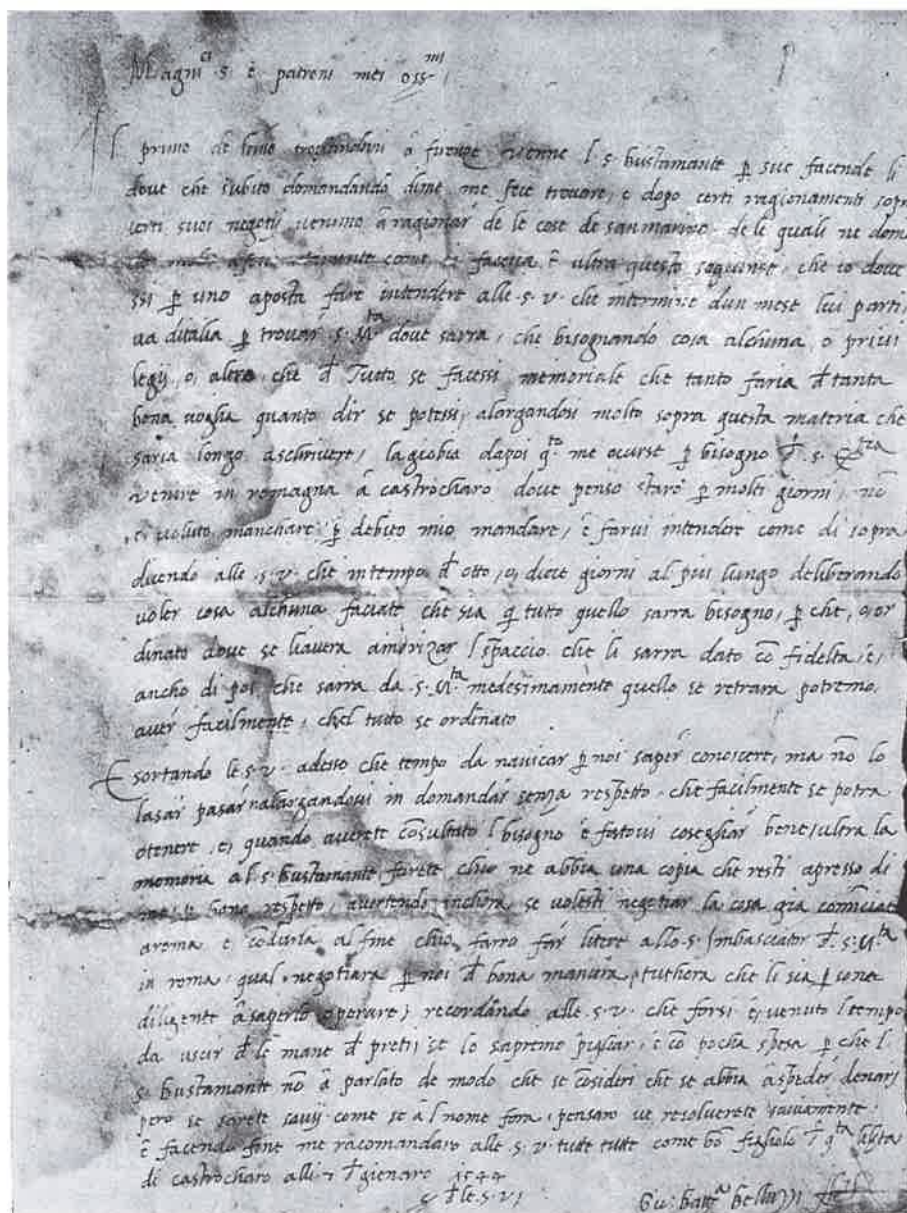 Magni^ci s. è patroni mei oss^mi
l primo de lano trovandomi â firenze venne l s. bustamante p sue facende li
dove che subito domandando dime me fece trovare, e dopo certi ragionamenti sopra
certi suoi negotij venimo â ragionar de le cose de san marino. de le quali ne dom
come si faceva è ultra questo sogiunse, che io dove
ssi p uno aposta fare intendere alle s. v. che intermine dun mese lui parti
va ditalia p trovar s. M^ta dove sarra, che bisognando cosa alchuna o privi
legij, o, altro che d Tutto se facessi memoriale che tanto faria d tanta
bona voglia quanto dir se potessi, alargandosi molto sopra questa materia che
saria longo aschrivere, la giobia dapoi q^to me ocurse p bisogno d. s. Ex^tia
venire in romagna â castrocharo dove penso staro p molti giorni, nõ
ò voluto manchare p debito mio mandare, è farvi intendere come di sopra
dicendo alle s. v. che in tempo d otto, o, diece giorni al piu lungo deliberando
voler cosa alchuna faciate che sia q tutto quello sarra bisogno, p che, o, or
dinato dove se havera l spaccio che li sarra dato cõ fidelta, e,
ancho di poi che sarra da s. M^ta medesimamente quello se retrara potremo
aver facilmente, chel tutto se ordinato
Esortando le s. v. adesso che tempo da navicar p noi saper conoscere, ma nõ lo
lasar pasar nalargandovi in domandar senza respetto. che facilmente se potra
otenere, e, quando averete cõsultato l bisogno è bene, ultra la
memoria al s. bustamante farete chio ne abbia una copia che resti apresso di
me, p bono respetto, avertendo inchora se volesti negotiar la cosa gia cominciata
aroma e cõdurla al fine chio farro far litere allo s. Imbasciator d. s. M^ta
in roma. qual negotiara p noi d bona maniera, tuthora che li sia p sona
diligente â saperlo operare, recordãdo alle s. v. che forsi è, venuto l tempo
da uscir d le mane d preti, se lo sapremo pigliar, è cõ pocha spesa p che l
s. bustamante nõ â parlato de modo che se cõsideri che se abbia â speder denari
pero se sarete savij come se â l nome fora, pensaro ve resolverete saviamente
è facendo fine me racomandaro alle s. v. tutte tutte come bõ figliolo d q^ta liberta
di castrocharo alli 7 d gienaro 1544
d le s. v.
Gio: batt^a belluzzi